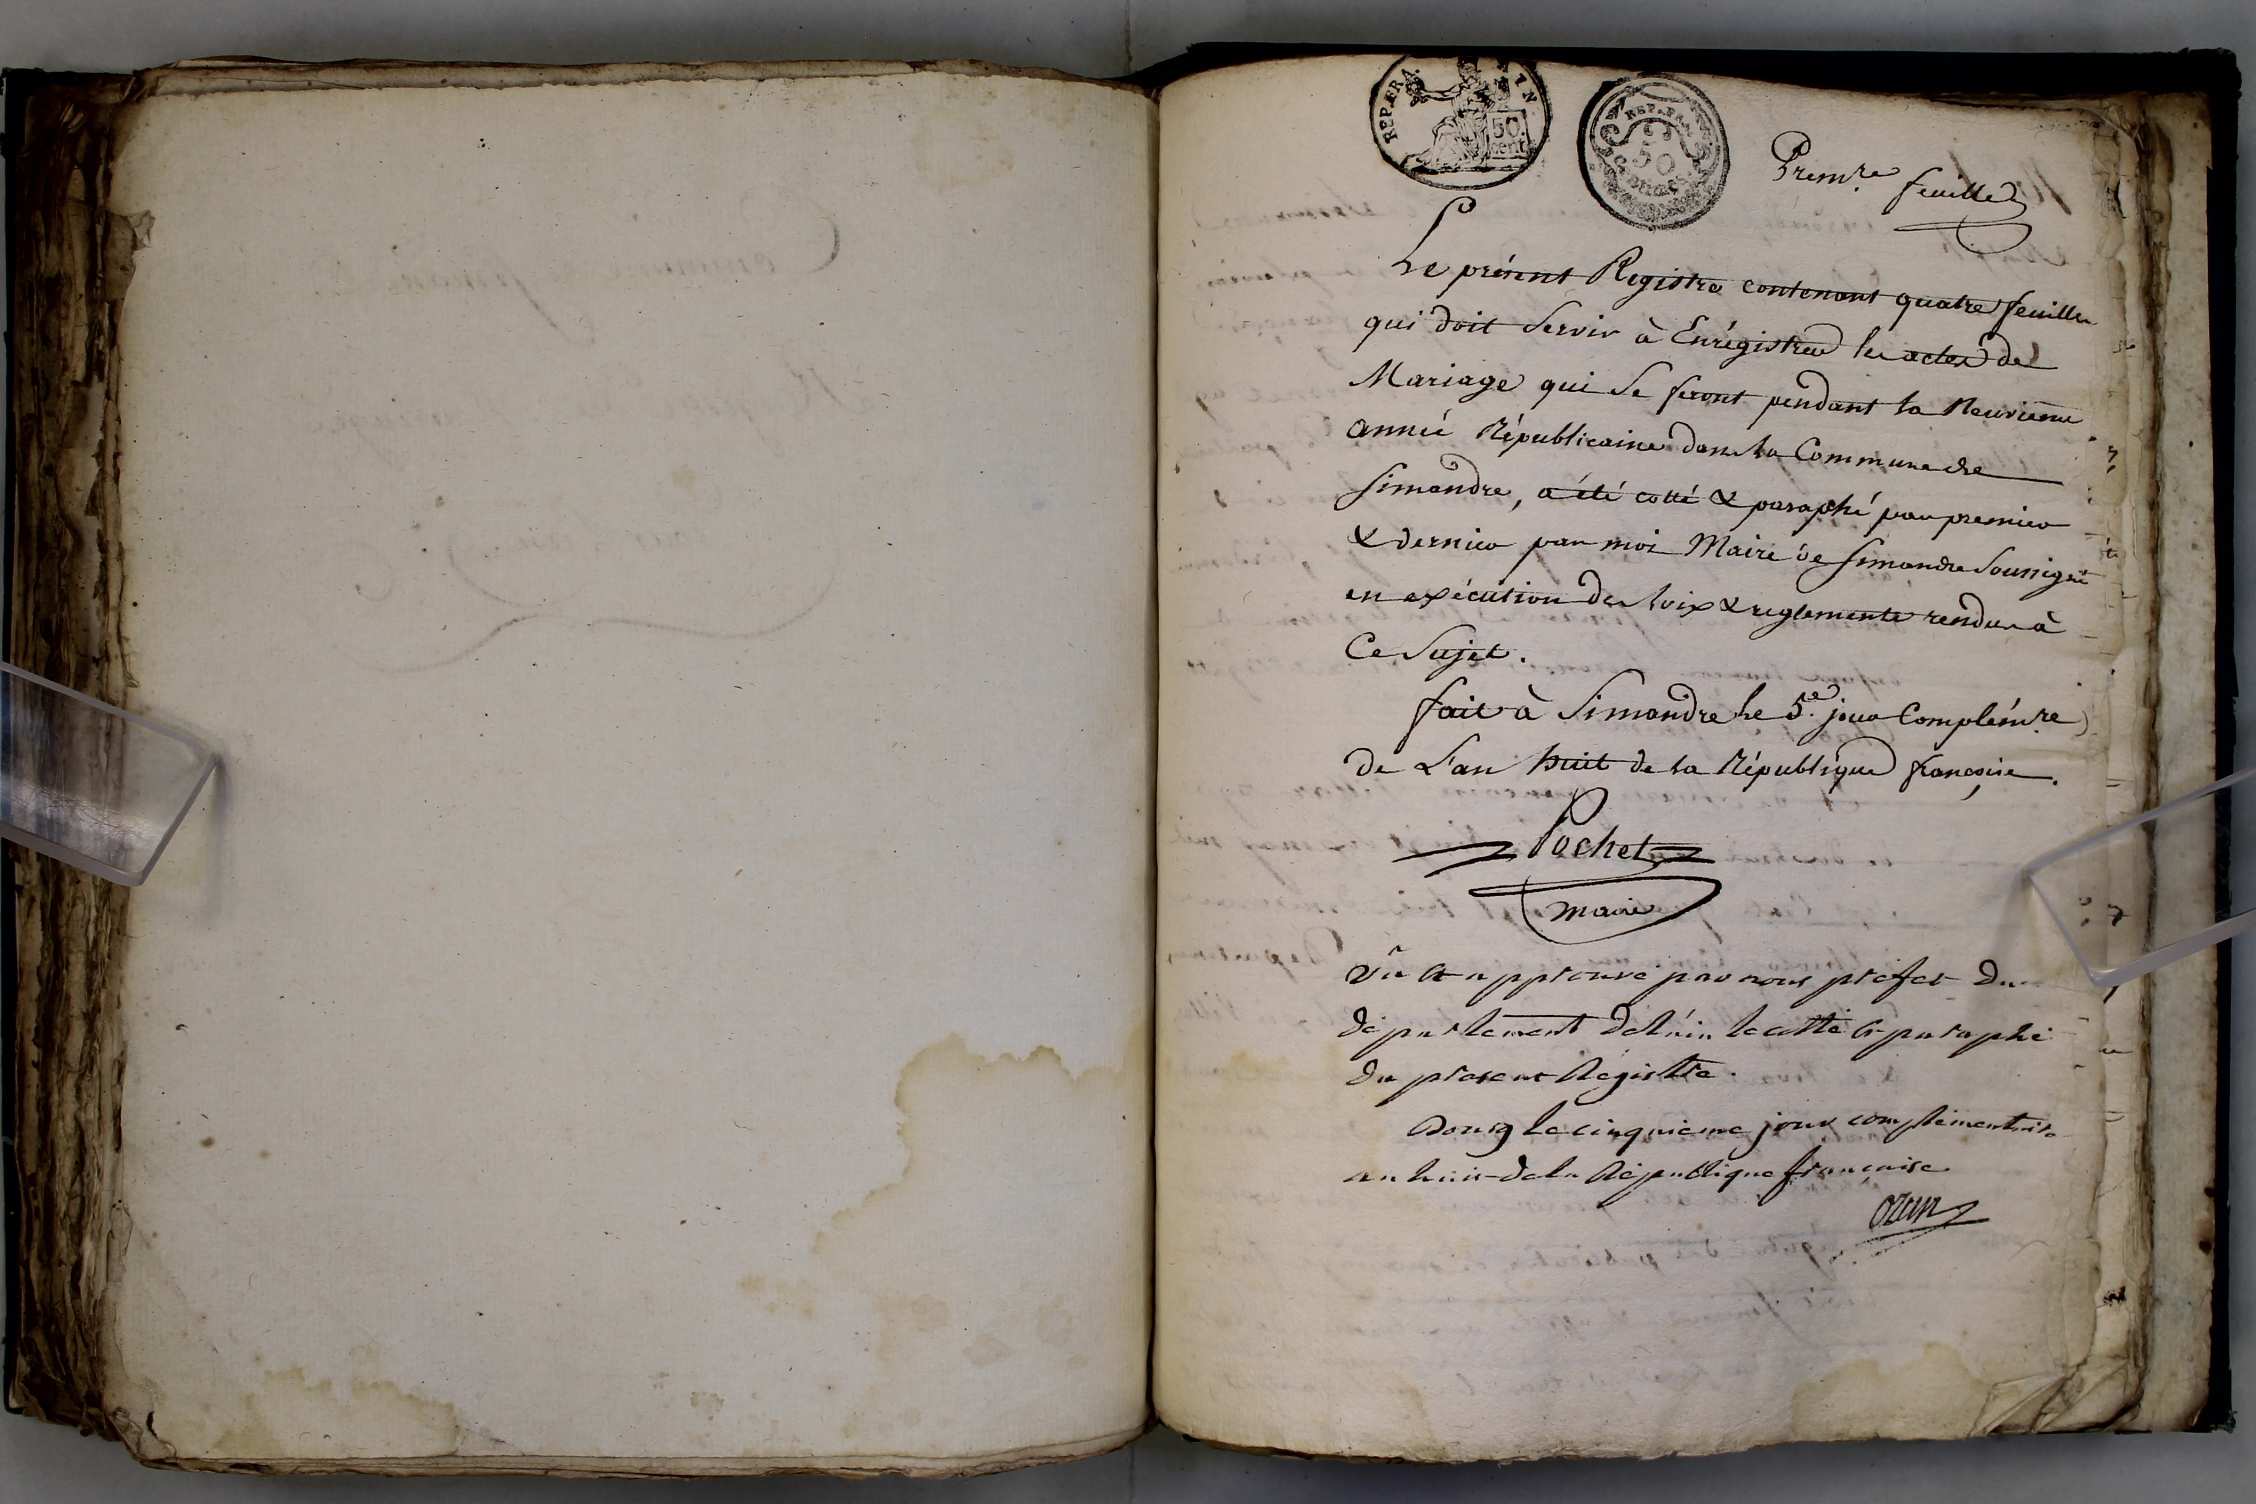 REP. FRA.
50
cent.
REP. FRA.
50
CENTIMES
Prem.re feuille
Le présent Registre contenant quatre feuilles
qui doit Servir à Enrégistrer les actes de
Mariage qui Se feront pendant la Neuvieme
année Républicaine dans la Commune de
Simandre, a été cotté & paraphé par premier
& dernier par moi Maire de Simandre Soussigné
en exécution des loix & reglements rendus à
Ce Sujet.
fait à Simandre le 5.e jour Complém.re
de L'an huit de la République françoise.
Pochet
maire
Vû et approuvé par nous préfet du
département de l'ain le cotté & paraphé
du présent Régistre.
Bourg le cinquieme jour complémentaire
an huit de la République française
ozun